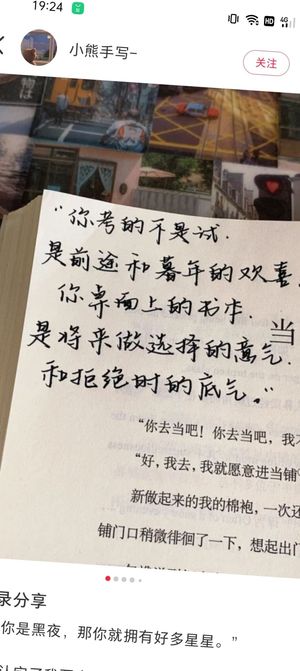 19:24
HD
4G
小熊手写-
关注
“你考的不是试.
是前途和暮年的欢喜
你桌面上的书本.
当
是将来做选择的高气.
和拒绝时的底气。”
“你去当吧！你去当吧，我不
“好，我去，我就愿意进当铺
新做起来的我的棉袍，一次还
铺门口稍微徘徊了一下，想起出门
录分享
你是黑夜，那你就拥有好多星星。”